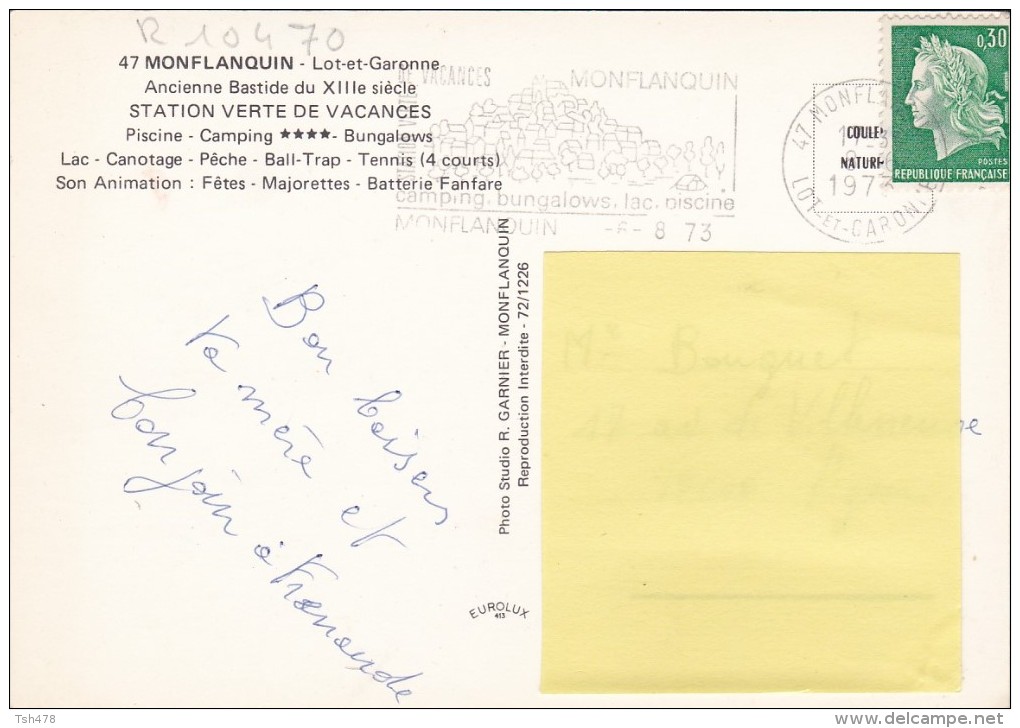 R 10470
47 MONFLANQUIN - Lot-et-Garonne
Ancienne Bastide du XIIIe siècle
STATION VERTE DE VACANCES
Piscine - Camping ★★★★- Bungalows
Lac - Canotage - Pêche - Ball-Trap - Tennis (4 courts)
Son Animation : Fêtes - Majorettes - Batterie Fanfare
DE VACANCES
MONFLANQUIN
camping. bungalows. lac. piscine
MONFLANQUIN -6- 8 73
47 MONFL
1973
LOT-ET-GARONNE
COULE
NATURE
0,30
POSTES
REPUBLIQUE FRANÇAISE
Photo Studio R. GARNIER - MONFLANQUIN
Reproduction Interdite - 72/1226
Bon baisers
ta mère et
EUROLUX
413
Bouquet
17
Tsh478
www.delcampe.net